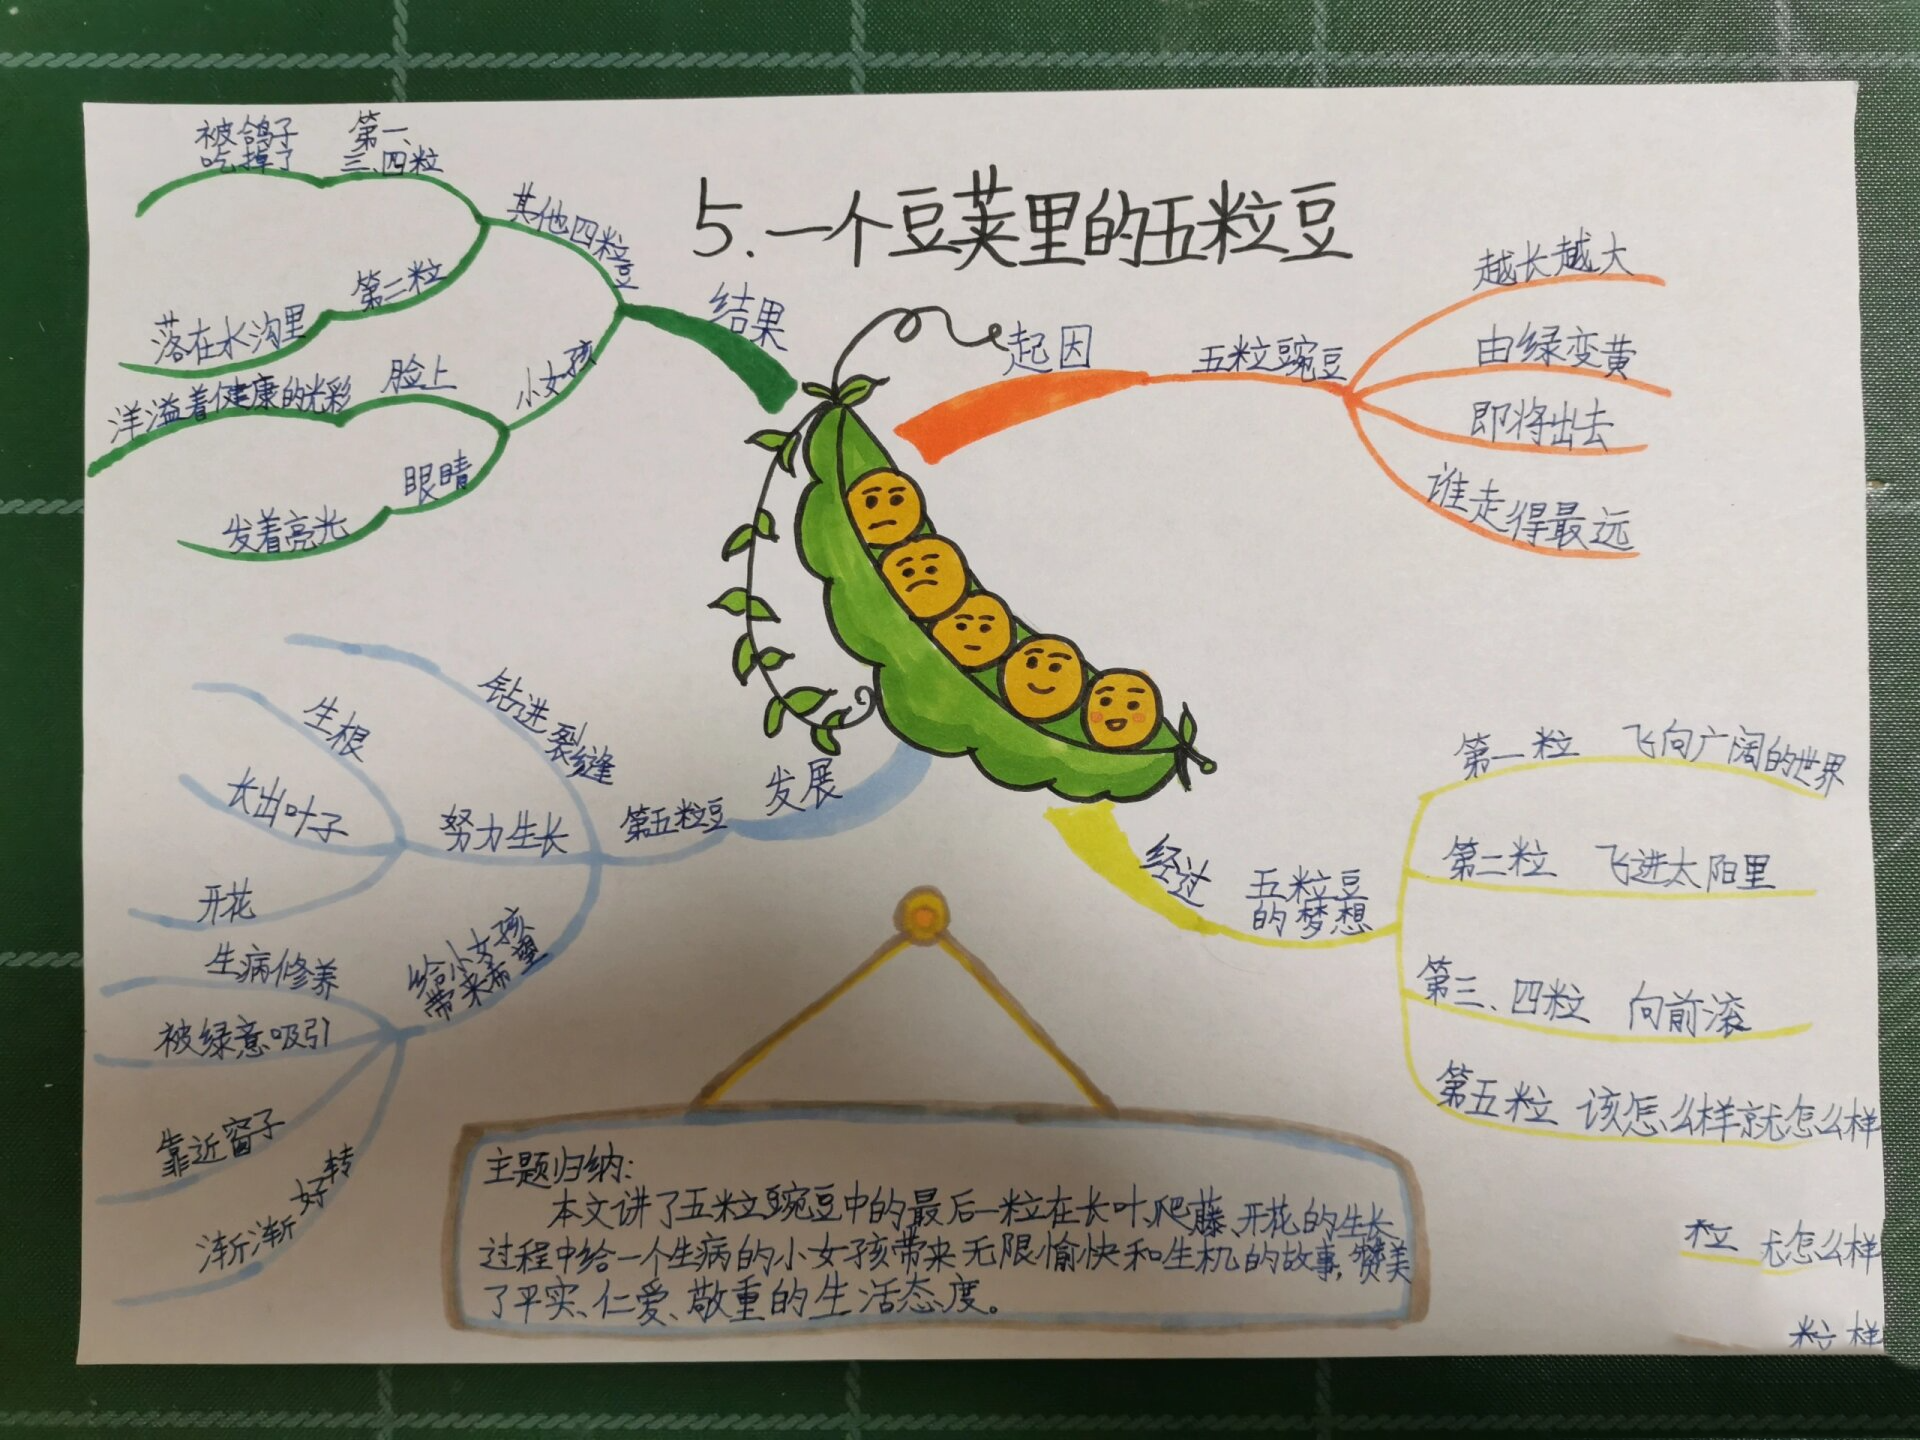 5.一个豆荚里的五粒豆
起因
五粒豌豆
越长越大
由绿变黄
即将出去
谁走得最远
经过
五粒豆
的梦想
第一粒 飞向广阔的世界
第二粒 飞进太阳里
第三、四粒 向前滚
第五粒 该怎么样就怎么样
发展
第五粒豆
钻进裂缝
努力生长
生根
长出叶子
开花
给小女孩
带来希望
生病修养
被绿意吸引
靠近窗子
渐渐好转
结果
其他四粒豆
第一、
三、四粒
被鸽子
吃掉了
第二粒
落在水沟里
小女孩
脸上
洋溢着健康的光彩
眼睛
发着亮光
主题归纳:
本文讲了五粒豌豆中的最后一粒在长叶、爬藤、开花的生长
过程中给一个生病的小女孩带来无限愉快和生机的故事,赞美
了平实、仁爱、敬重的生活态度。
粒 尤怎么样
粒 样